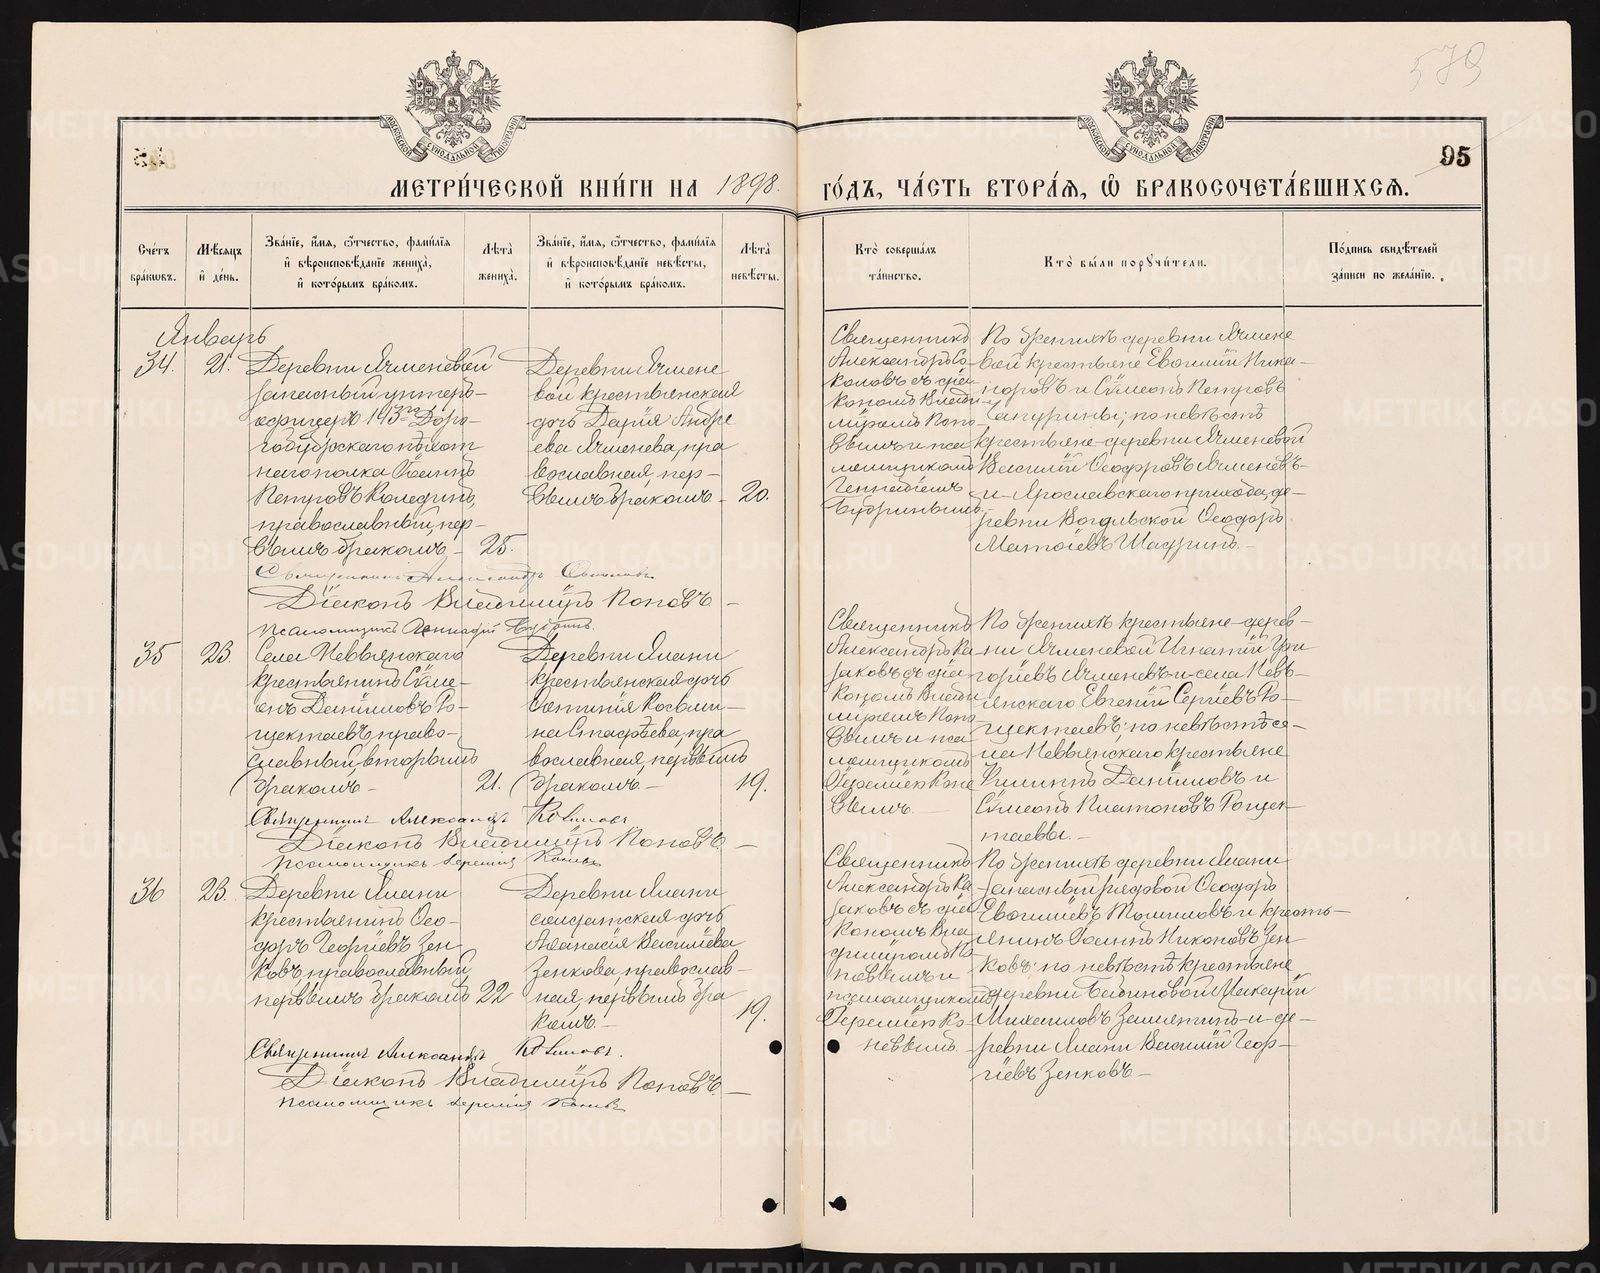 579
95
МЕТРИ́ЧЕСКОЙ КНИ́ГИ НА 1898. ГО́ДЪ, ЧА́СТЬ ВТОРА́Я, Ѽ БРАКОСОЧЕТА́ВШИХСЯ.
Сче́тъ бра́кѡвъ.
Мѣ́сяцъ и҆ де́нь.
Зва́нїе, и҆́мя, ѻ҆́тчество, фами́лїя и҆ вѣроисповѣ́данїе жениха̀, и҆ кото́рымъ бра́комъ.
Лѣта̀ жениха̀.
Зва́нїе, и҆́мя, ѻ҆́тчество, фами́лїя и҆ вѣроисповѣ́данїе невѣ́сты, и҆ кото́рымъ бра́комъ.
Лѣта̀ невѣ́сты.
Кто̀ соверша́лъ та́инство.
Кто̀ бы́ли порꙋчи́тели.
По́дпись свидѣ́телей за́писи по жела́нїю.
Январь
34.
21.
Деревни Ячменевой
запасный унтеръ-
офицеръ 143го Доро-
гобужскаго пѣхот
наго полка Іоаннъ
Петровъ Колединъ,
православный, пер-
вымъ бракомъ –
25.
Деревни Ячмене
вой крестьянская
дочь Дарія Андре
ева Ячменева, пра
вославная, пер-
вымъ бракомъ –
20.
Священникъ
Александръ Со-
коловъ съ діа-
кономъ Влади-
міромъ Попо-
вымъ и пса
ломщикомъ
Геннадіемъ
По женихѣ деревни Ячмене
вой крестьяне Евѳимій Ника-
норовъ и Сѵмеонъ Петровъ
крестьяне деревни Ячменевой
Василій Ѳеодоровъ Ячменевъ-
и Ярославскаго прихода, де-
ревни Ѳеодоръ
Матѳіевъ Шадринъ. –
Священникъ Александръ Соколовъ
Діаконъ Владиміръ Поповъ –
Псаломщикъ Геннадій
35
23.
Села Невьянскаго
крестьянинъ Сѵме-
онъ Даніиловъ Ро-
щектаевъ, право-
славный, вторымъ
бракомъ –
21.
Деревни Ялани
крестьянская дочь
Фотинія Косьми-
на Стафѣева, пра
вославная, первымъ
бракомъ. –
19.
Священникъ
Александръ Ка
заковъ съ діа-
кономъ Влади
міромъ Попо-
вымъ и пса
ломщикомъ
Іереміею Коне
вымъ.
По женихѣ крестьяне дерев-
ни Ячменевой Игнатій Гри
горіевъ Ячменевъ и села Невь-
янскаго Евгеній Сергіевъ Ро-
щектаевъ; по невѣстѣ се-
ла Невьянскаго крестьяне
Филиппъ Даніиловъ и
Сѵмеонъ Платоновъ Рощек-
таевы. –
Священникъ Александръ Казаковъ
Діаконъ Владиміръ Поповъ –
Псаломщикъ Іеремія Коневъ
36
23.
Деревни Ялани
крестьянинъ Ѳео-
доръ Георгіевъ Зен
ковъ, православный,
первымъ бракомъ
22
Деревни Ялани
солдатская дочь
Аѳанасія Василіева
Зенкова, православ-
ная, первымъ бра
комъ. –
19.
Священникъ
Александръ Ка
заковъ съ діа
кономъ Вла
диміромъ По
повымъ и
псаломщикомъ
Іереміею Ко-
невымъ.
По женихѣ деревни Ялани
запасный рядовой Ѳеодоръ
Евѳиміевъ Томиловъ и кресть-
янинъ Іоаннъ Никоновъ Зен
ковъ; по невѣстѣ крестьяне
деревни Бабиновой Макарій
Михаиловъ Замятинъ и де-
ревни Ялани Василій Геор-
гіевъ Зенковъ –
Священникъ Александръ Казаковъ.
Діаконъ Владиміръ Поповъ. –
Псаломщикъ Іеремія Коневъ